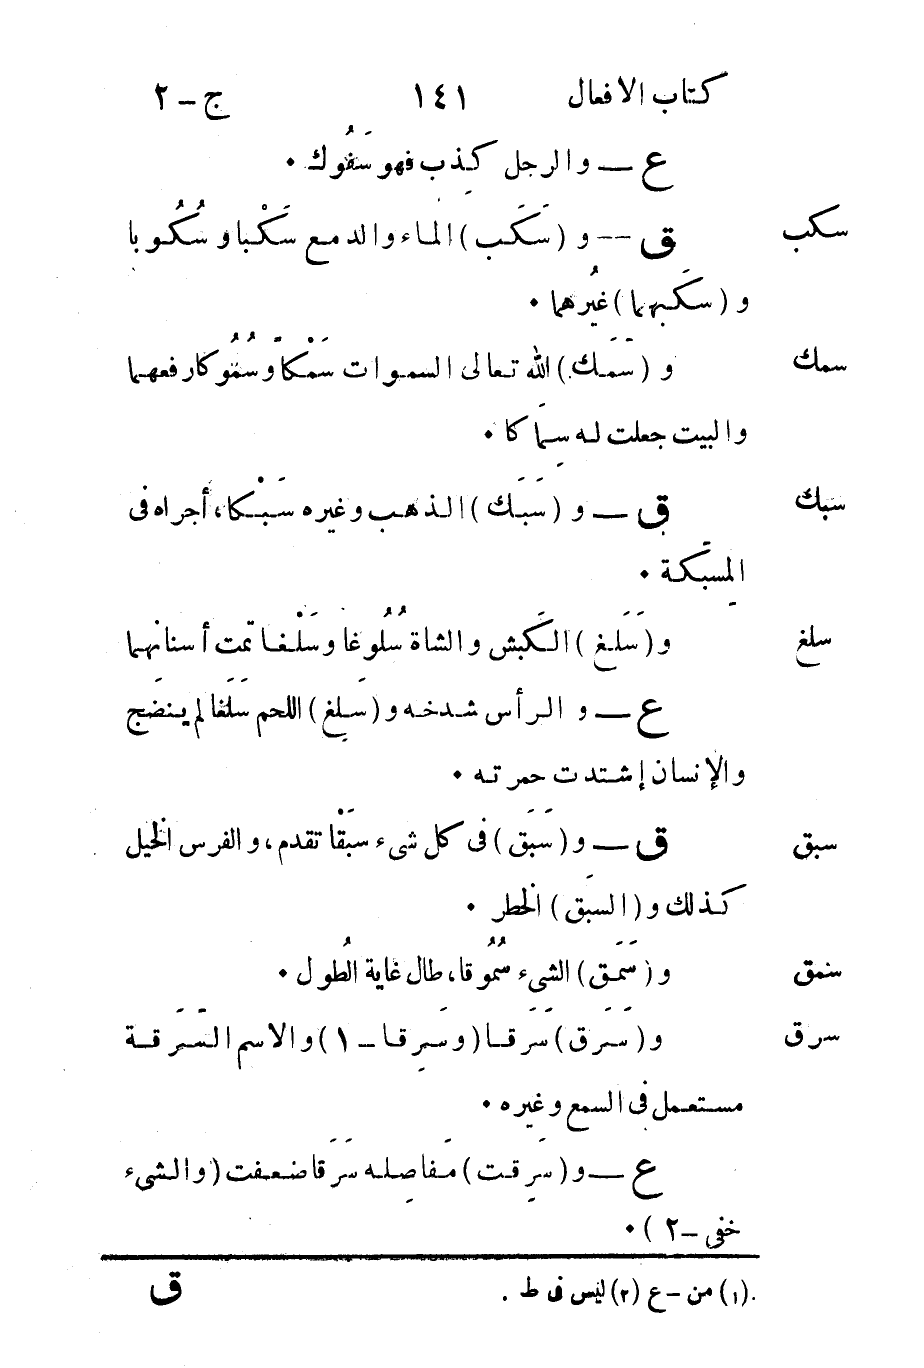 كتاب الافعال ١٤١ ج - ٢
ع — والرجل كذب فهو سَفُوك •
سكب ق — و (سَكَب) الماء والدمع سَكْبا و سُكُوبا
و (سكَبهما) غيُرهما •
سمك و (سَمَك) الله تعالى السموات سَمْكاً وسُمُوكا رفعهما
والبيت جعلت له سِمَاكا •
سبك ق — و (سَبَك) الذهب وغيره سَبْكا، أجراه فى
المِسبَكة •
سلغ و (سَلَغ) الكَبش والشاة سُلُوغا وسَلْغا تمت أسنانهما
ع — و الرأس شدخه و (سَلِغ) اللحم سَلَغا لم ينضَج
والإنسان إشتدت حمرته •
سبق ق — و (سَبَق) فى كل شىء سَبْقا تقدم، و الفرس الخيل
كذلك و (السبَق) الخطر •
سمق و (سَمَق) الشىء سُمُوقا، طال غاية الُطول •
سرق و (سَرَق) سَرَقا (وسَرِقا - ١) والاسم السَّرَقة
مستعمل فى السمع وغيره •
ع — و (سَرِقت) مَفاصِله سَرَقا ضعفت (والشىء
خفى - ٢) •
(١) من - ع (٢) ليس فى ط . ق